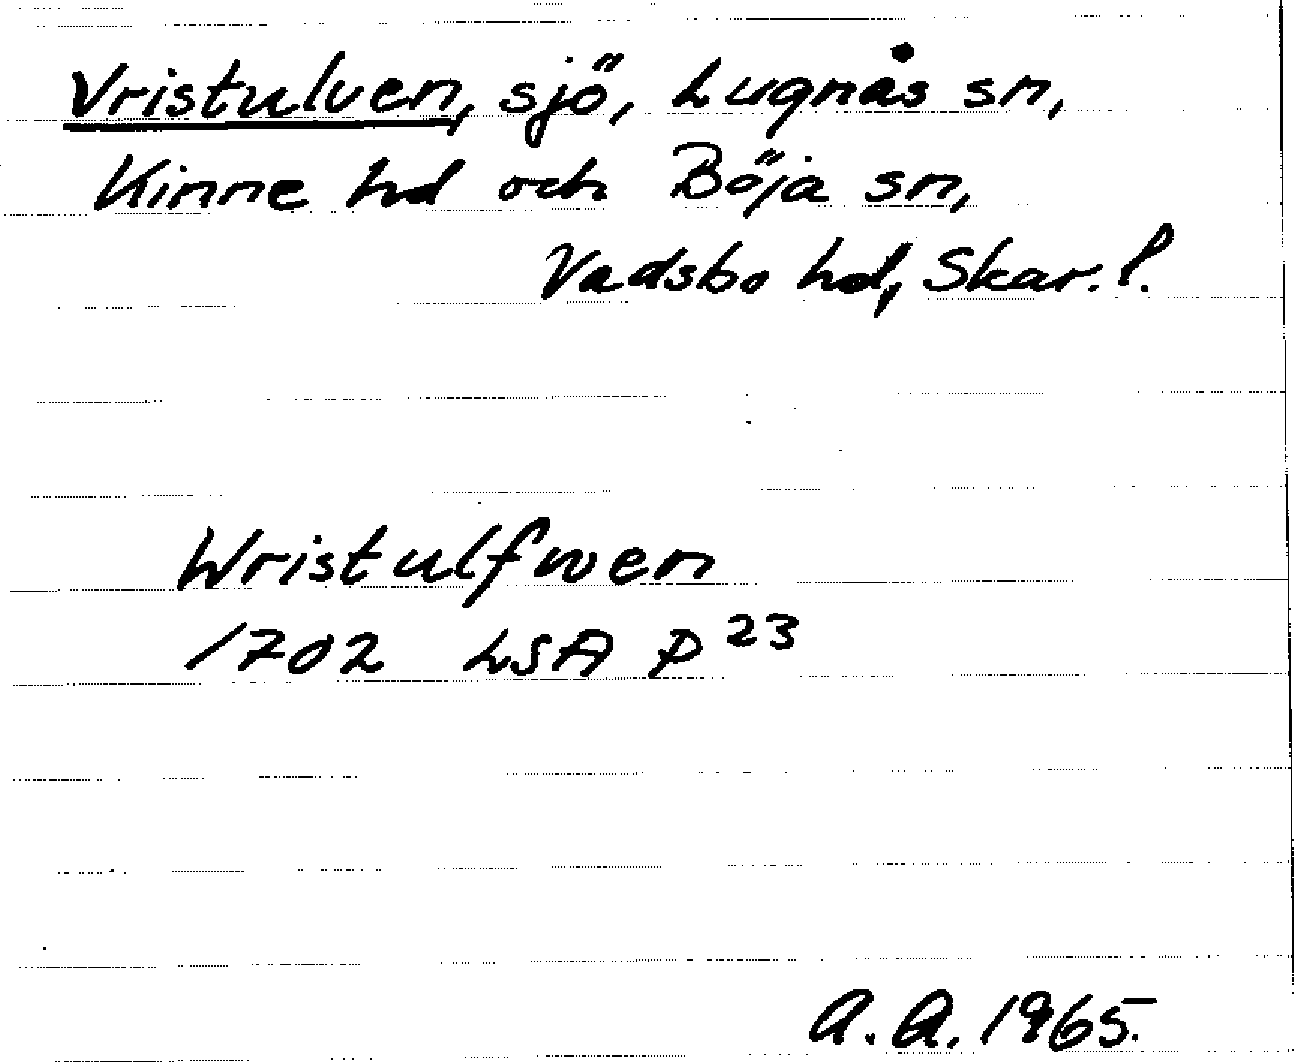 Vristulven, sjö, Lugnås sn,
Kinne hd och Böja sn,
Vadsbo hd, Skar. l.
Wristulfwen
1702 LSA P 23
A. A. 1965.